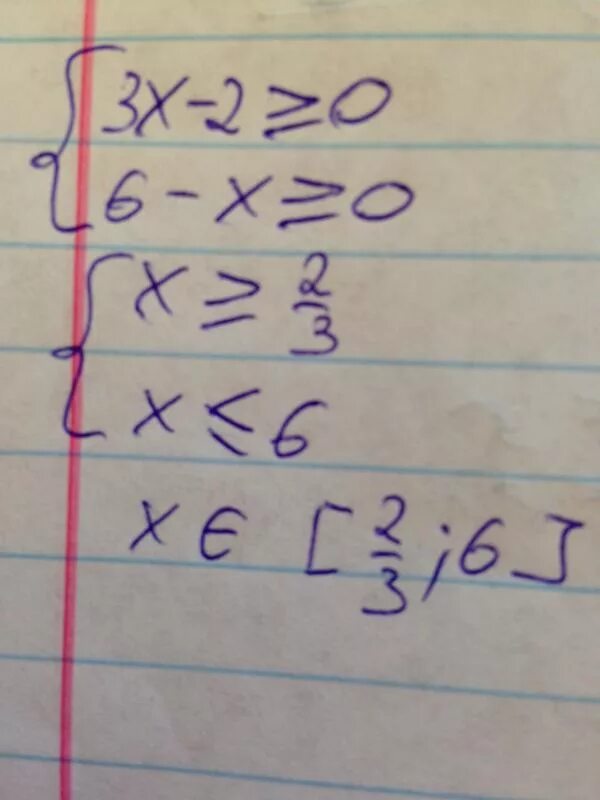 3x-2≥0
6-x≥0
x≥2/3
x≤6
x∈[2/3;6]